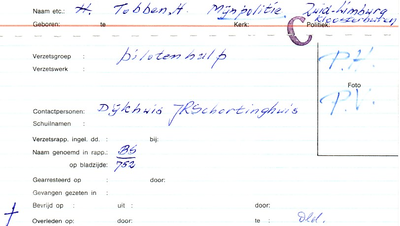 Naam etc.: H. Tobben, H. Mijnpolitie, Zuid-Limburg
Geboren: te Kerk: Politiek: Kloosterbuten
C
Verzetsgroep : pilotenhulp
Verzetswerk :
P.H.
Foto
P.V.
Contactpersonen: Dijkhuis JRSchortinghuis
Schuilnamen :
Verzetsrapp. ingel. dd. : bij:
Naam genoemd in rapp.: BS
op bladzijde: 752
Gearresteerd op : door:
Gevangen gezeten in :
Bevrijd op : uit : door:
Overleden op : door: te : Dld.